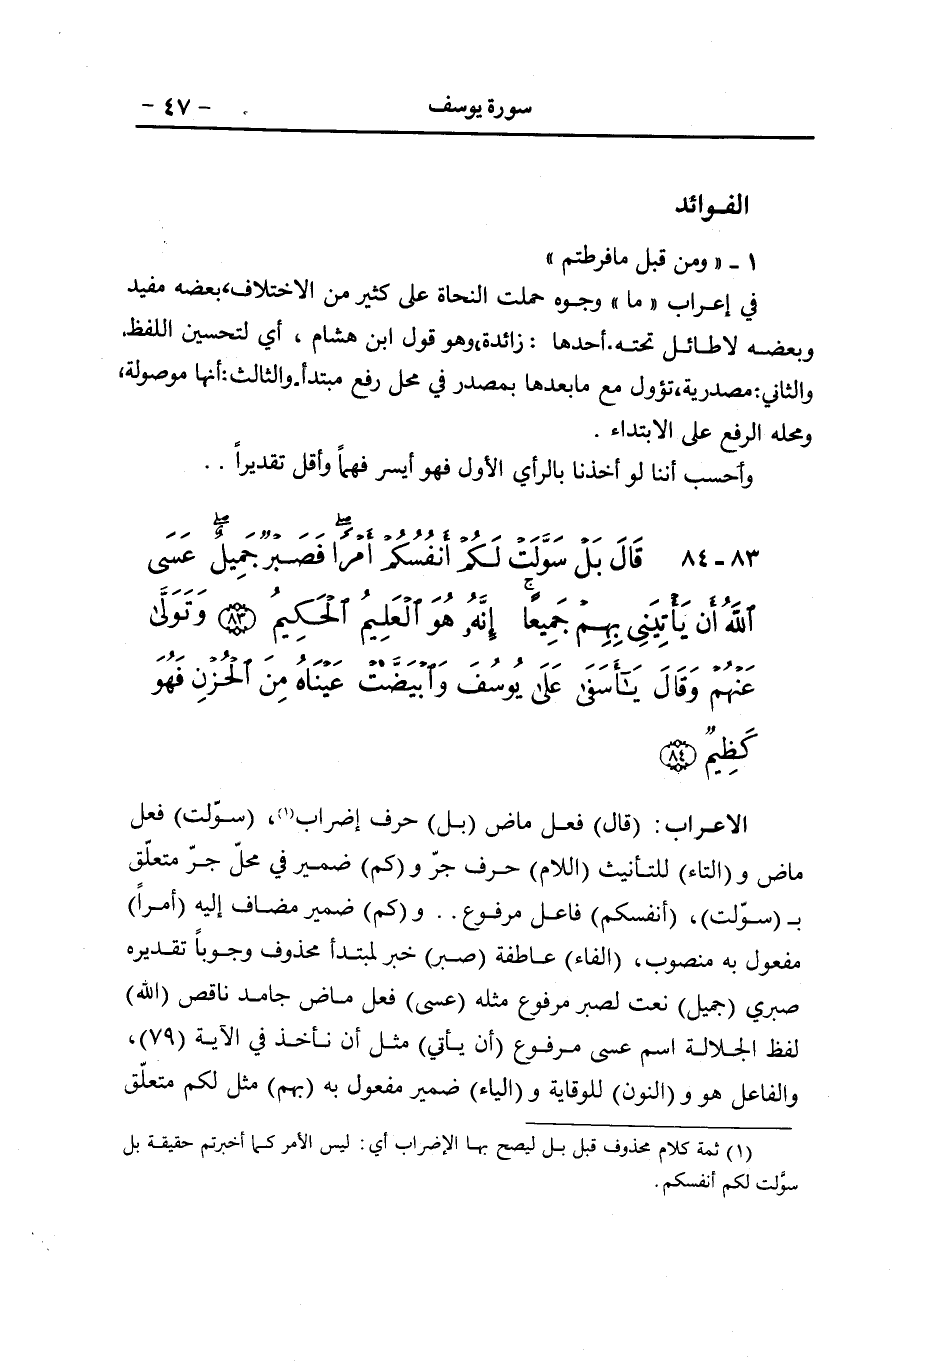 سورة يوسف - ٤٧ -
الفـوائد
١ ـ « ومن قبل مافرطتم »
في إعراب « ما » وجوه حملت النحاة على كثير من الاختلاف، بعضه مفيد
وبعضـه لاطائـل تحتـه. أحدها : زائدة، وهو قول ابن هشام ، أي لتحسين اللفظ.
والثاني: مصدرية، تؤول مع مابعدها بمصدر في محل رفع مبتدأ. والثالث: أنها موصولة،
ومحله الرفع على الابتداء .
وأحسب أننا لو أخذنا بالرأي الأول فهو أيسر فهماً وأقل تقديراً . .
٨٣ ـ ٨٤ قَالَ بَلْ سَوَّلَتْ لَكُمْ أَنفُسُكُمْ أَمْرًا ۖ فَصَبْرٌ جَمِيلٌ ۖ عَسَى
ٱللَّهُ أَن يَأْتِيَنِي بِهِمْ جَمِيعًا ۚ إِنَّهُۥ هُوَ ٱلْعَلِيمُ ٱلْحَكِيمُ ﴿٨٣﴾ وَتَوَلَّىٰ
عَنْهُمْ وَقَالَ يَـٰٓأَسَفَىٰ عَلَىٰ يُوسُفَ وَٱبْيَضَّتْ عَيْنَاهُ مِنَ ٱلْحُزْنِ فَهُوَ
كَظِيمٌ ﴿٨٤﴾
الاعـراب : (قال) فعـل ماض (بـل) حرف إضراب(١)، (سـوّلت) فعل
ماض و (التاء) للتـأنيث (اللام) حـرف جرّ و (كم) ضمـير في محلّ جـرّ متعلّق
بـ (سـوّلت)، (أنفسكم) فاعـل مرفـوع . . و (كم) ضمير مضـاف إليه (أمـراً)
مفعـول به منصوب، (الفاء) عـاطفة (صبـر) خبر لمبتـدأ محذوف وجوباً تقـديره
صبري (جميل) نعت لصبر مرفوع مثله (عسى) فعل مـاض جامـد ناقص (الله)
لفظ الجـلالـة اسم عسى مرفـوع (أن يـأتي) مثـل أن نـأخـذ في الآيـة (٧٩)،
والفاعل هو و (النون) للوقاية و (الياء) ضمير مفعول به (بهم) مثل لكم متعلّق
(١) ثمة كلام محذوف قبل بـل ليصح بهـا الإضراب أي : ليس الأمر كـما أخبرتم حقيقـة بل
سوّلت لكم أنفسكم .